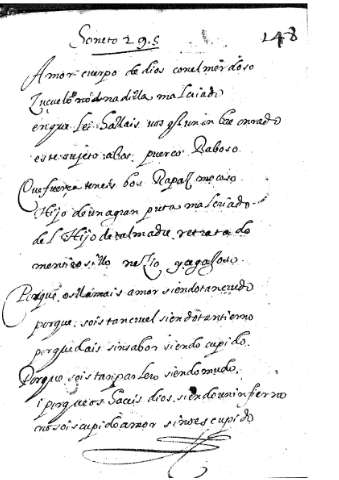 Soneto 29. 148
Amor cuerpo de dios con el mordoso
mal criado
en que hallais vos
este sujeto alias puerco Raboso
Que fuerça teneis bos Rapaz mocoso
Hijo de un a gran puta mal criado
del Hijo de tal madre retratado
mentirosillo neçio
Porque os llamais amor siendo tan crudo
porque sois tan cruel siendo tan tierno
porque dais sinsabor siendo cupido
Porque sois tan parlero siendo mudo
i porque os haceis dios siendo un infierno
no sois cupido amor sino escupido